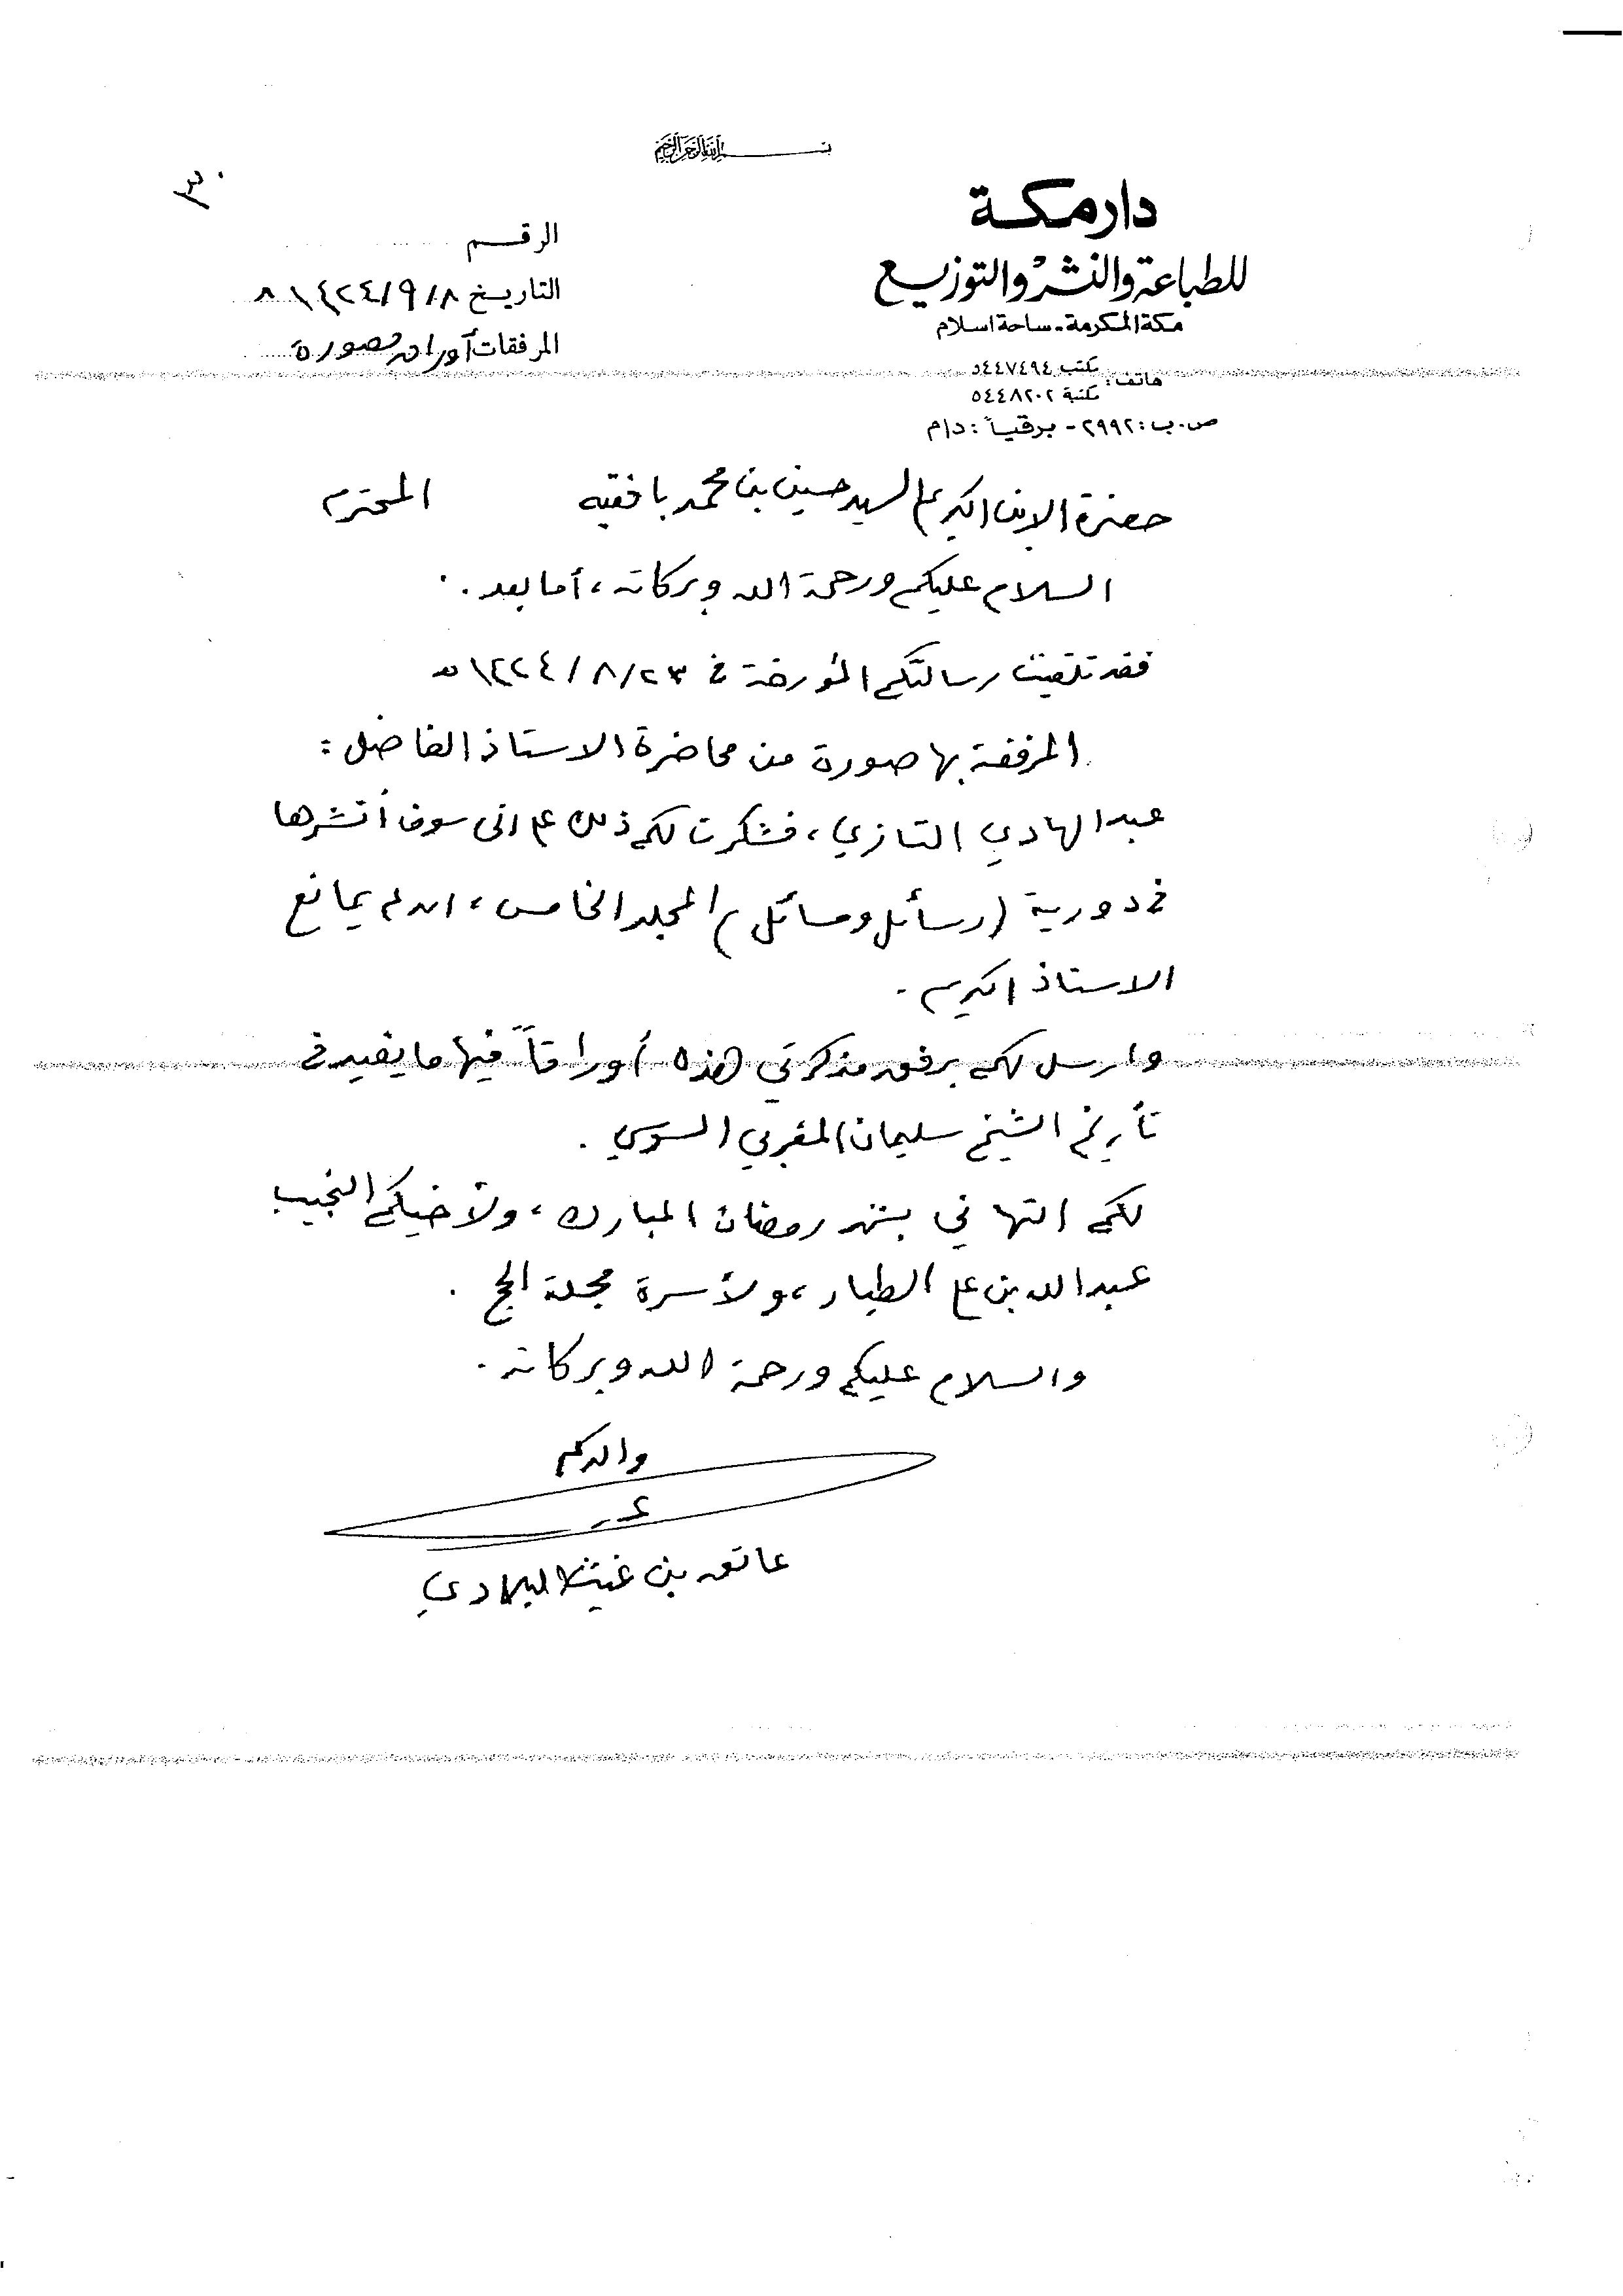 بسم الله الرحمن الرحيم
٣٠
دار مكة
للطباعة والنشر والتوزيع
مكة المكرمة - ساحة اسلام
هاتف: مكتب ٥٤٤٧٤٩٤
مكتبة ٥٤٤٨٢٠٢
ص.ب: ٢٩٩٢ - برقياً: دام
الرقم
التاريخ ١٤٢٤/٩/٨ هـ
المرفقات أوراق مصورة
حضرة الابن الكريم السيد حسين بن محمد بافقيه المحترم
السلام عليكم ورحمة الله وبركاته، أما بعد.
فقد تلقيت رسالتكم المؤرخة في ١٤٢٤/٨/٢٣ هـ
المرفقة بها صورة من محاضرة الاستاذ الفاضل:
عبد الهادي التازي، فشكرت لكم ذلك على اني سوف أنشرها
في دورية (رسائل ومسائل) المجلد الخامس، ان لم يمانع
الاستاذ الكريم.
وارسل لكم برفق مذكرتي هذه أوراقاً فيها ما يفيد في
تأريخ الشيخ سليمان المغربي السوسي.
لكم التهاني بشهر رمضان المبارك، ولأخيكم النجيب
عبد الله بن علي الطيار، ولأسرة مجلة الحج.
والسلام عليكم ورحمة الله وبركاته.
والدكم
عاتق بن غيث البلادي